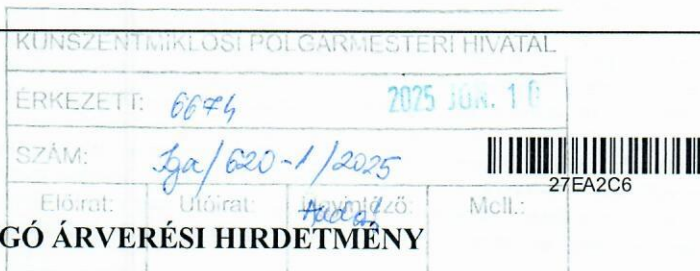 KUNSZENTMIKLÓSI POLGÁRMESTERI HIVATAL
ÉRKEZETT: 6674 2025 JÚN. 10
SZÁM: Iga/620-1/2025
27EA2C6
Előirat: Utóirat: Ügyintéző: Mell.:
GÓ ÁRVERÉSI HIRDETMÉNY